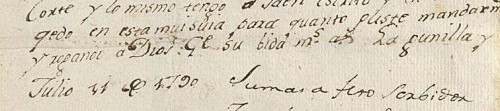 Corte y lo mismo tengo a Jaen escrito y
qedo en esta mui suia, para quanto guste mandarm
y rogando a Dios Ge. su bida ms. as. La Zunilla y
Julio 11 de 1790 Sumas afto Serbidor